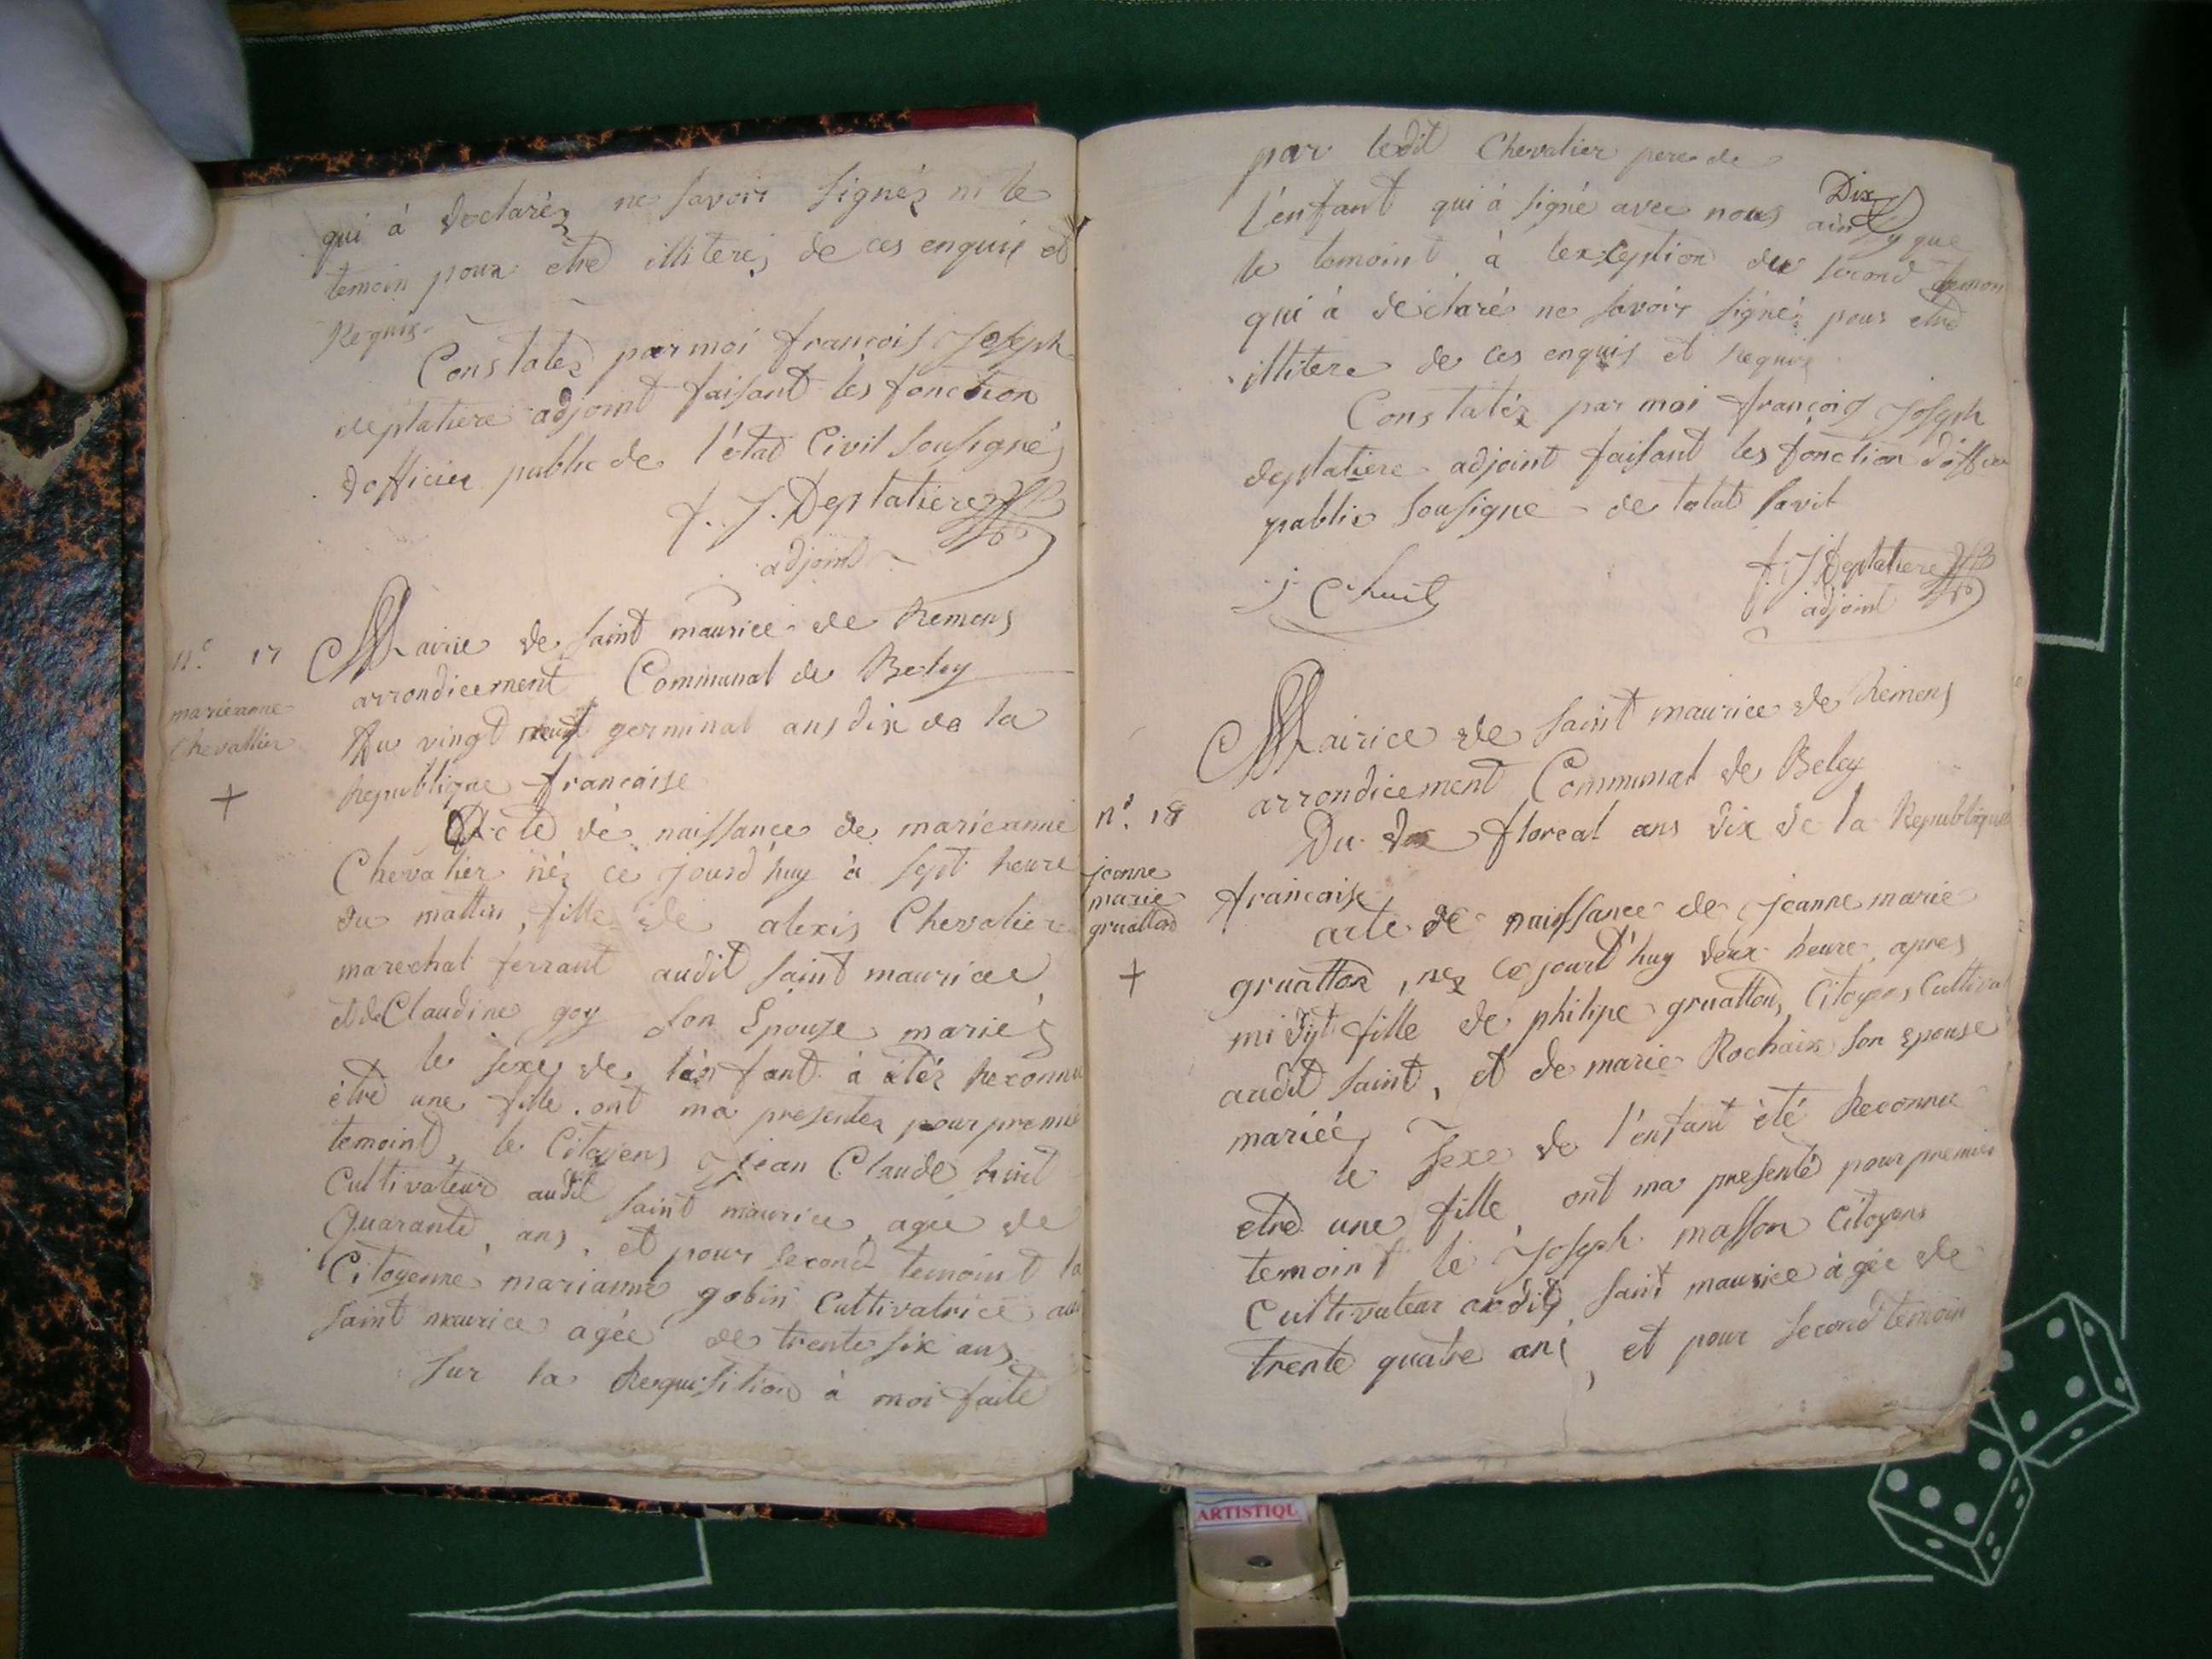 qui à declaréz ne savoir signéz ni le
temoin pour etre illiteréz de ces enquis et
Requis
Constatez par moi françois Joseph
deplatiere adjoint faisant les fonction
dofficier public de l'état Civil sousigné
f. J. Deplatiere
adjoint
n.o 17
marieanne
chevallier
+
Mairie de saint maurice de Remens
arrondicement Communal de Beley
Du vingt neuf germinal ans dix de la
Republique francaise
Acte de naissance de marieanne
Chevalier néz ce jourd'huy à sept heure
du mattin, fille de alexis Chevalier
marechal ferrant audit saint maurice
et de Claudine goy son Epouse mariéz
le sexe de lenfant à étéz reconnu
être une fille. ont ma presentez pour premie
temoint, le Citoyens jean Claude huit
Cultivateur audit saint maurice, agée de
Quarante, ans, et pour second temoint la
Citoyenne marianne gobin Cultivatrice au
saint maurice agée de trente six ans,
Sur la Requisition à moi faite
par ledit Chevalier pere de
Dix
l'enfant qui à signé avec nous ainsy que
le temoint, à lexception du second temoin
qui à declaré ne savoir signéz pour etre
illitere de ces enquis et Requis
Constatéz par moi françois Joseph
deplatiere adjoint faisant les fonction d'officie
public sousigne de letat savil
j. C huit
f. J Deplatiere
adjoint
Mairiee de saint maurice de Remens
arrondicement Communal de Beley
n.o 18
Du dix floreal ans dix de la Republique
jeanne
marie
gruatton
+
francoise
acte de naissance de jeanne marie
gruatton, nez ce jourt'huy deux heure apres
mi dyt fille de philipe gruatton, Citoyens Cultivat
audit saint, et de marie Rochaix son epouse
mariéé,
le sexe de l'enfant été Reconnue
etre une fille, ont ma presenté pour premier
temoint le Joseph masson Citoyens
Cultivateur audit, saint maurice àgée de
trente quatre ans, et pour second temoin